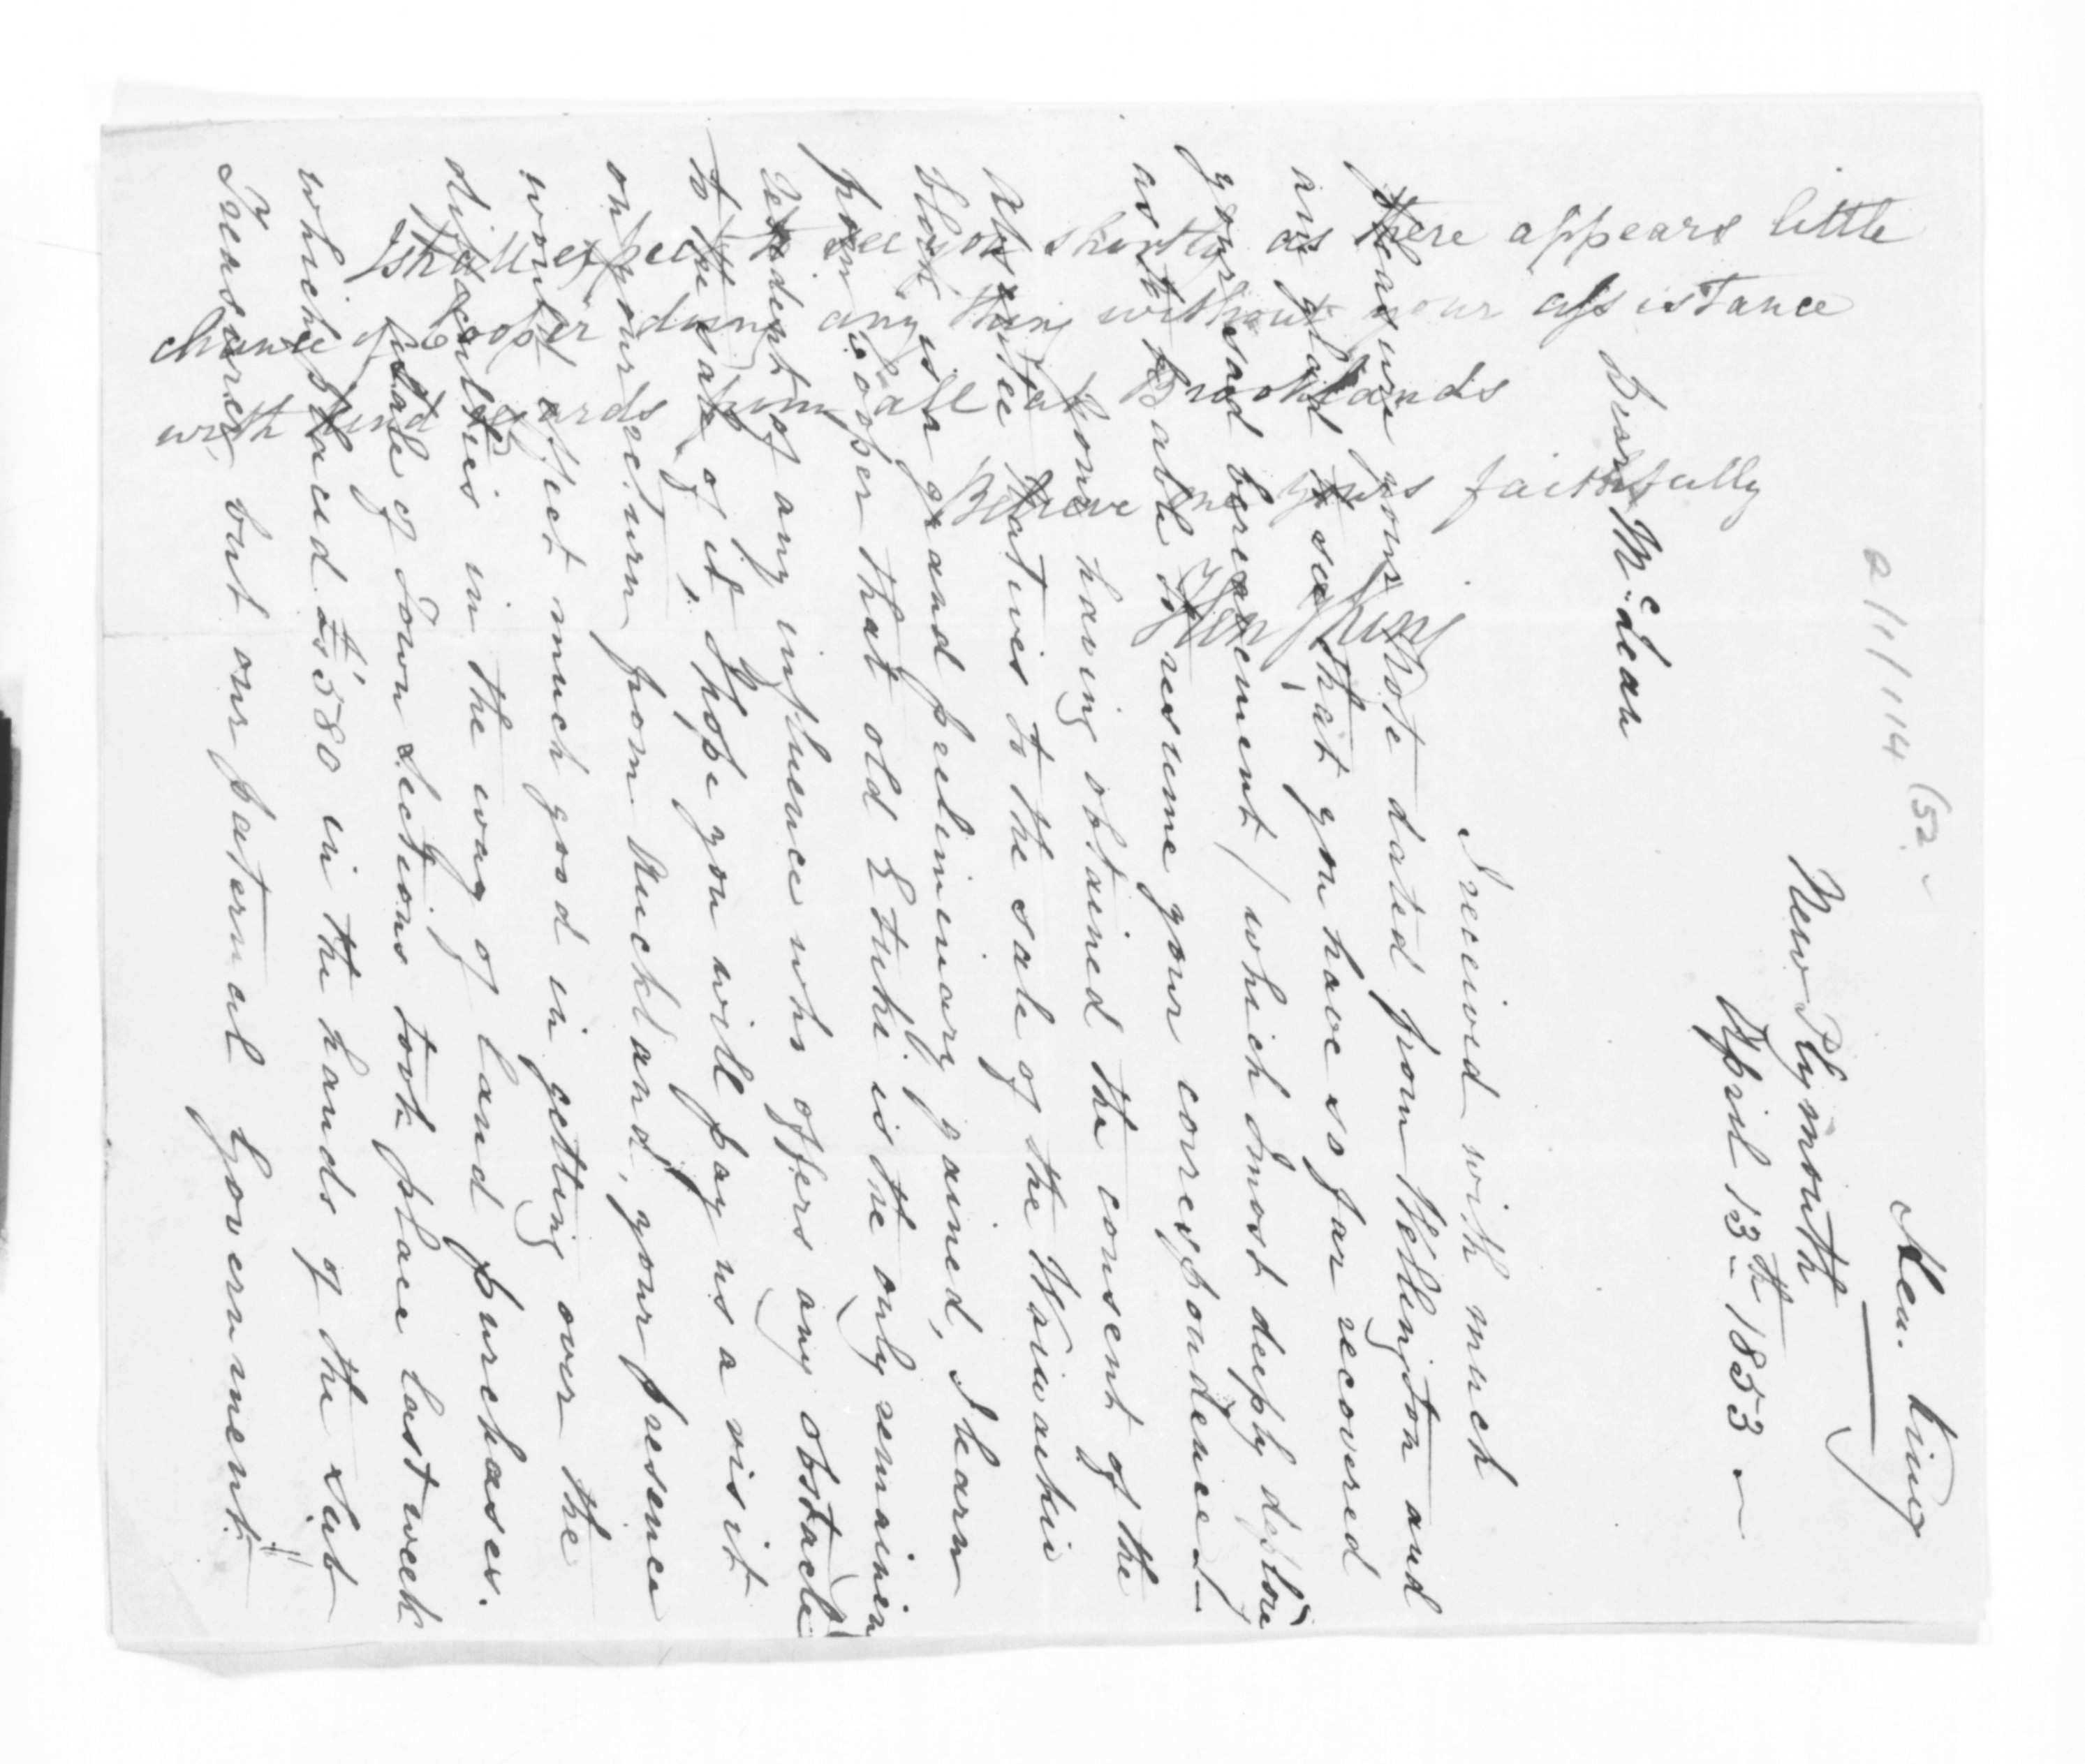 Hen. King
2/1/114 (52
New Plymouth
April 13th 1853
Dear McLean
I received with much
pleasure your note dated from Wellington and
am glad to see that you have so far recovered
your sad bereavement (which I most deeply deplore)
as to be able to resume your correspondence.
Your having obtained the consent of the
absentee natives to the sale of the Waiwakiu
block is a grand preliminary gained, I learn
from Cooper that old Etuki is the only remaining
resident of any influence who offers any obstacle
to the sale of it, I hope you will pay us a visit
on your return from Auckland, your presence
would effect much good in getting over the
difficulties in the way of land purchases.
A sale of Town Sections took place last week
which placed £1580 in the hands of the Sub
Treasurer, but our paternal Government
I shall expect to see you shortly as there appears little
chance of Cooper doing any thing without your assistance
with kind regards from all at Brooklands
Believe me yours faithfully
Hen King